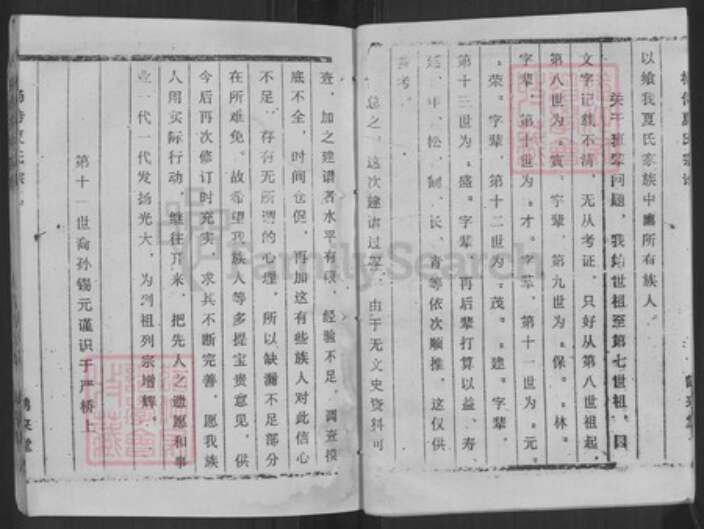 以飨我夏氏家族中鹰所有族人。
关于班辈问题,我始世祖至第七世祖,因
文字记载不清,无从考证,只好从第八世祖起,
第八世为“寅”字辈,第九世为“保”“林”
字辈,第十世为“才”字辈,第十一世为“元”
“荣”字辈,第十二世为“茂”“建”字辈,
第十三世为“盛”字辈,再后辈打算以益、寿、
延、年、松、制、长、青等依次顺推,这仅供
参考。
总之,这次建谱过程,由于无文史资料可
查,加之建谱者水平有限,经验不足,调查摸
底不全,时间仓促,再加这有些族人对此信心
不足,存有无所谓的心理,所以缺漏不足部分
在所难免。故希望我族人等多提宝贵意见,供
今后再次修订时充实,求其不断完善,愿我族
人用实际行动,继往开来,把先人之遗愿和事
业一代一代发扬光大,为列祖列宗增辉。
第十一世裔孙锡元谨识于严桥上
FamilySearch